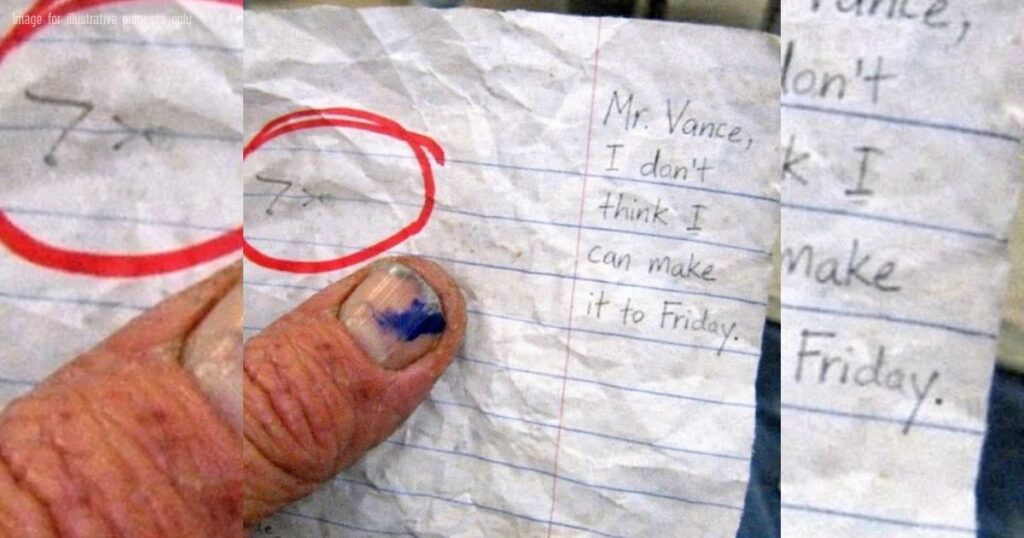 Image for illustrative purposes only
7x
Mr. Vance,
I don't
think I
can make
it to Friday.
7x
Vance,
don't
k I
make
Friday.